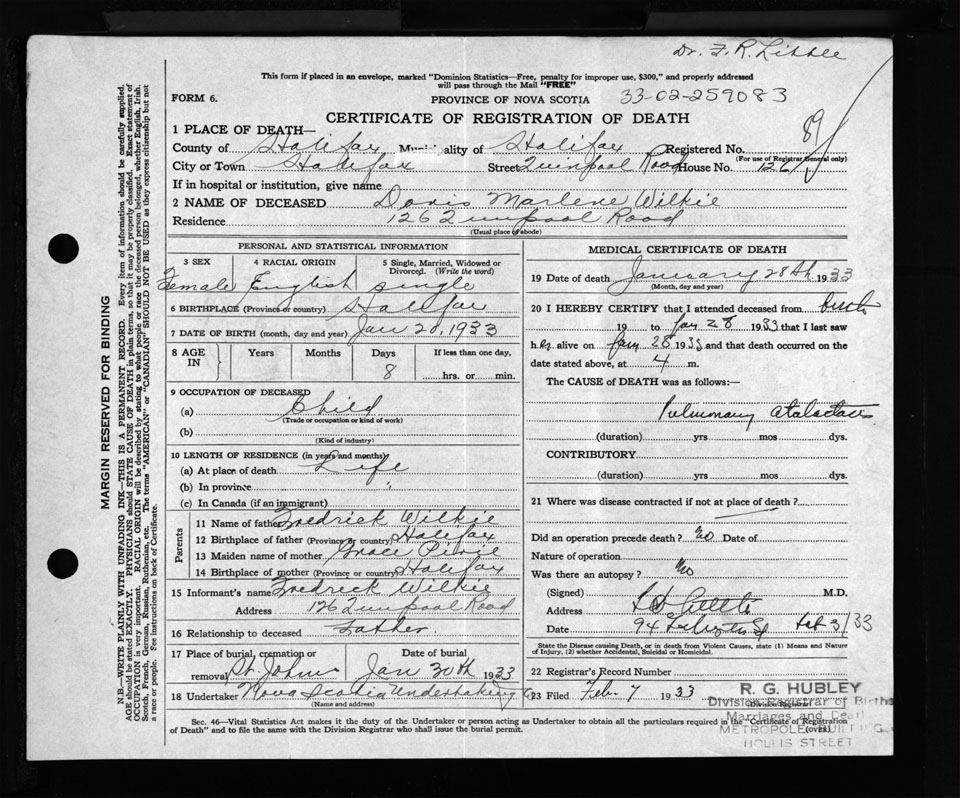 Dr. F. R. Little
This form if placed in an envelope, marked "Dominion Statistics—Free, penalty for improper use, $300," and properly addressed
will pass through the Mail "FREE"
FORM 6.
PROVINCE OF NOVA SCOTIA
33-02-259083
CERTIFICATE OF REGISTRATION OF DEATH
89
1 PLACE OF DEATH—
County of Halifax Municipality of Halifax Registered No.
(For use of Registrar General only)
City or Town Halifax Street Quinpool Road House No. 126
If in hospital or institution, give name
2 NAME OF DECEASED Doris Marlene Wilkie
Residence 126 Quinpool Road
(Usual place of abode)
PERSONAL AND STATISTICAL INFORMATION
3 SEX 4 RACIAL ORIGIN 5 Single, Married, Widowed or
Divorced. (Write the word)
Female English single
6 BIRTHPLACE (Province or country) Halifax
7 DATE OF BIRTH (month, day and year) Jan 20, 1933
8 AGE IN Years Months Days If less than one day,
8 hrs. or min.
9 OCCUPATION OF DECEASED
(a) Child
(Trade or occupation or kind of work)
(b)
(Kind of industry)
10 LENGTH OF RESIDENCE (in years and months)
(a) At place of death Life
(b) In province "
(c) In Canada (if an immigrant)
Parents
11 Name of father Fredrick Wilkie
12 Birthplace of father (Province or country) Halifax
13 Maiden name of mother Grace
14 Birthplace of mother (Province or country) Halifax
15 Informant's name Fredrick Wilkie
Address 126 Quinpool Road
16 Relationship to deceased Father.
17 Place of burial, cremation or
removal St. Johns
Date of burial
Jan 30th 1933
18 Undertaker Nova Scotia Undertaking Co
(Name and address)
MEDICAL CERTIFICATE OF DEATH
19 Date of death January 28th 1933
(Month, day and year)
20 I HEREBY CERTIFY that I attended deceased from birth
19 to Jan 28 1933 that I last saw
her alive on Jan 28 1933 and that death occurred on the
date stated above, at 4 m.
The CAUSE OF DEATH was as follows:—
Pulmonary Atalactasis
(duration) yrs mos dys.
CONTRIBUTORY
(duration) yrs mos dys.
21 Where was disease contracted if not at place of death?
Did an operation precede death? No Date of
Nature of operation
Was there an autopsy? No
(Signed) M.D.
Address
Date 94 Feb 3/33
State the Disease causing Death, or in death from Violent Causes, state (1) Means and Nature
of Injury, (2) whether Accidental, Suicidal or Homicidal.
22 Registrar's Record Number
23 Filed Feb. 7 1933
(Division Registrar)
R. G. HUBLEY
Division Registrar of Births
Marriages and Death
METROPOLE BUILDING
HOLLIS STREET
(over)
Sec. 46—Vital Statistics Act makes it the duty of the Undertaker or person acting as Undertaker to obtain all the particulars required in the "Certificate of Registration
of Death" and to file the same with the Division Registrar who shall issue the burial permit.
MARGIN RESERVED FOR BINDING
N.B.—WRITE PLAINLY WITH UNFADING INK—THIS IS A PERMANENT RECORD. Every item of information should be carefully supplied.
AGE should be stated EXACTLY. PHYSICIANS should STATE CAUSE OF DEATH in plain terms, so that it may be properly classified. Exact statement of
OCCUPATION is very important. RACIAL ORIGIN will be described by stating to what people or race the deceased person belonged, whether English, Irish,
Scotch, French, German, Russian, Ruthenian, etc. The terms "AMERICAN" or "CANADIAN" SHOULD NOT BE USED as they express citizenship but not
a race or people. See instructions on back of Certificate.